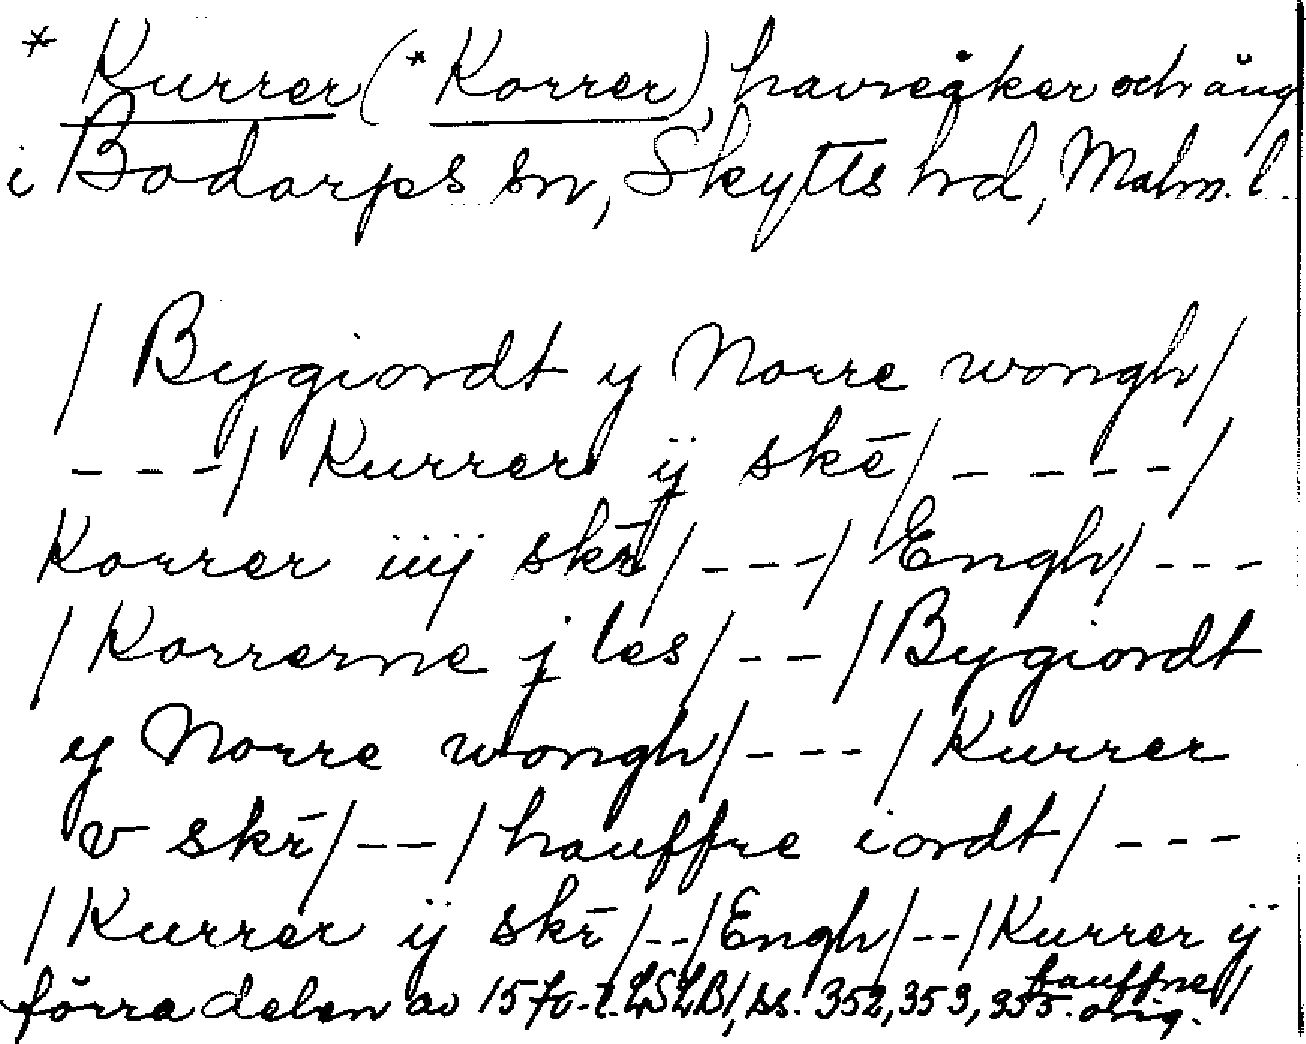 * Kurrer (*Korrer), havreåker och äng
i Bodarps sn, Skytts hd, Malm. l.
/ Bygiordt y Norre wongh /
- - - / Kurrer ij skē / - - - - /
Korrer iiij skr̄ / - - - / Engh / - - -
/ Korrerne j les / - - / Bygiordt
y Norre wongh / - - - / Kurrer
v skr̄ / - - / hauffre iordt / - - -
/ Kurrer ij skr̄ / - - / Engh / - - / Kurrer ij
hauffne /
förra delen av 1570-t. LSLB, ss. 352, 353, 355. orig.